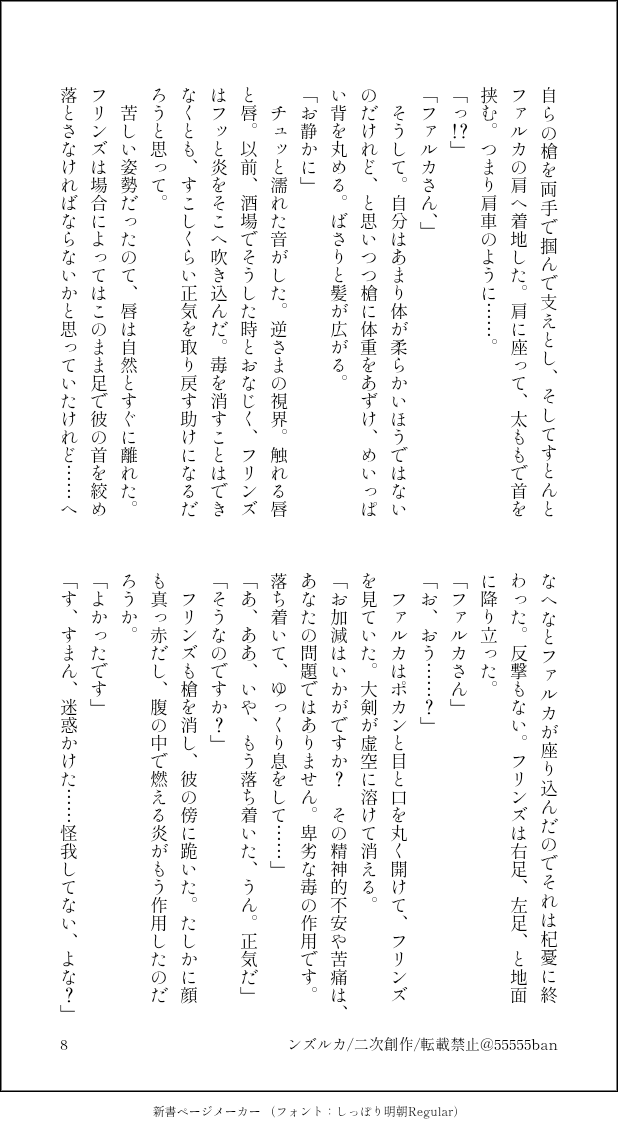 自らの槍を両手で掴んで支えとし、そしてすとんと
ファルカの肩へ着地した。肩に座って、太ももで首を
挟む。つまり肩車のように……。
「っ!?」
「ファルカさん、」
　そうして。自分はあまり体が柔らかいほうではない
のだけれど、と思いつつ槍に体重をあずけ、めいっぱ
い背を丸める。ばさりと髪が広がる。
「お静かに」
　チュッと濡れた音がした。逆さまの視界。触れる唇
と唇。以前、酒場でそうした時とおなじく、フリンズ
はフッと炎をそこへ吹き込んだ。毒を消すことはでき
なくとも、すこしくらい正気を取り戻す助けになるだ
ろうと思って。
　苦しい姿勢だったので、唇は自然とすぐに離れた。
フリンズは場合によってはこのまま足で彼の首を絞め
落とさなければならないかと思っていたけれど……へ
なへなとファルカが座り込んだのでそれは杞憂に終
わった。反撃もない。フリンズは右足、左足、と地面
に降り立った。
「ファルカさん」
「お、おう……？」
　ファルカはポカンと目と口を丸く開けて、フリンズ
を見ていた。大剣が虚空に溶けて消える。
「お加減はいかがですか？　その精神的不安や苦痛は、
あなたの問題ではありません。卑劣な毒の作用です。
落ち着いて、ゆっくり息をして……」
「あ、ああ、いや、もう落ち着いた、うん。正気だ」
「そうなのですか？」
　フリンズも槍を消し、彼の傍に跪いた。たしかに顔
も真っ赤だし、腹の中で燃える炎がもう作用したのだ
ろうか。
「よかったです」
「す、すまん、迷惑かけた……怪我してない、よな？」
8
ンズルカ/二次創作/転載禁止@55555ban
新書ページメーカー （フォント：しっぽり明朝Regular）